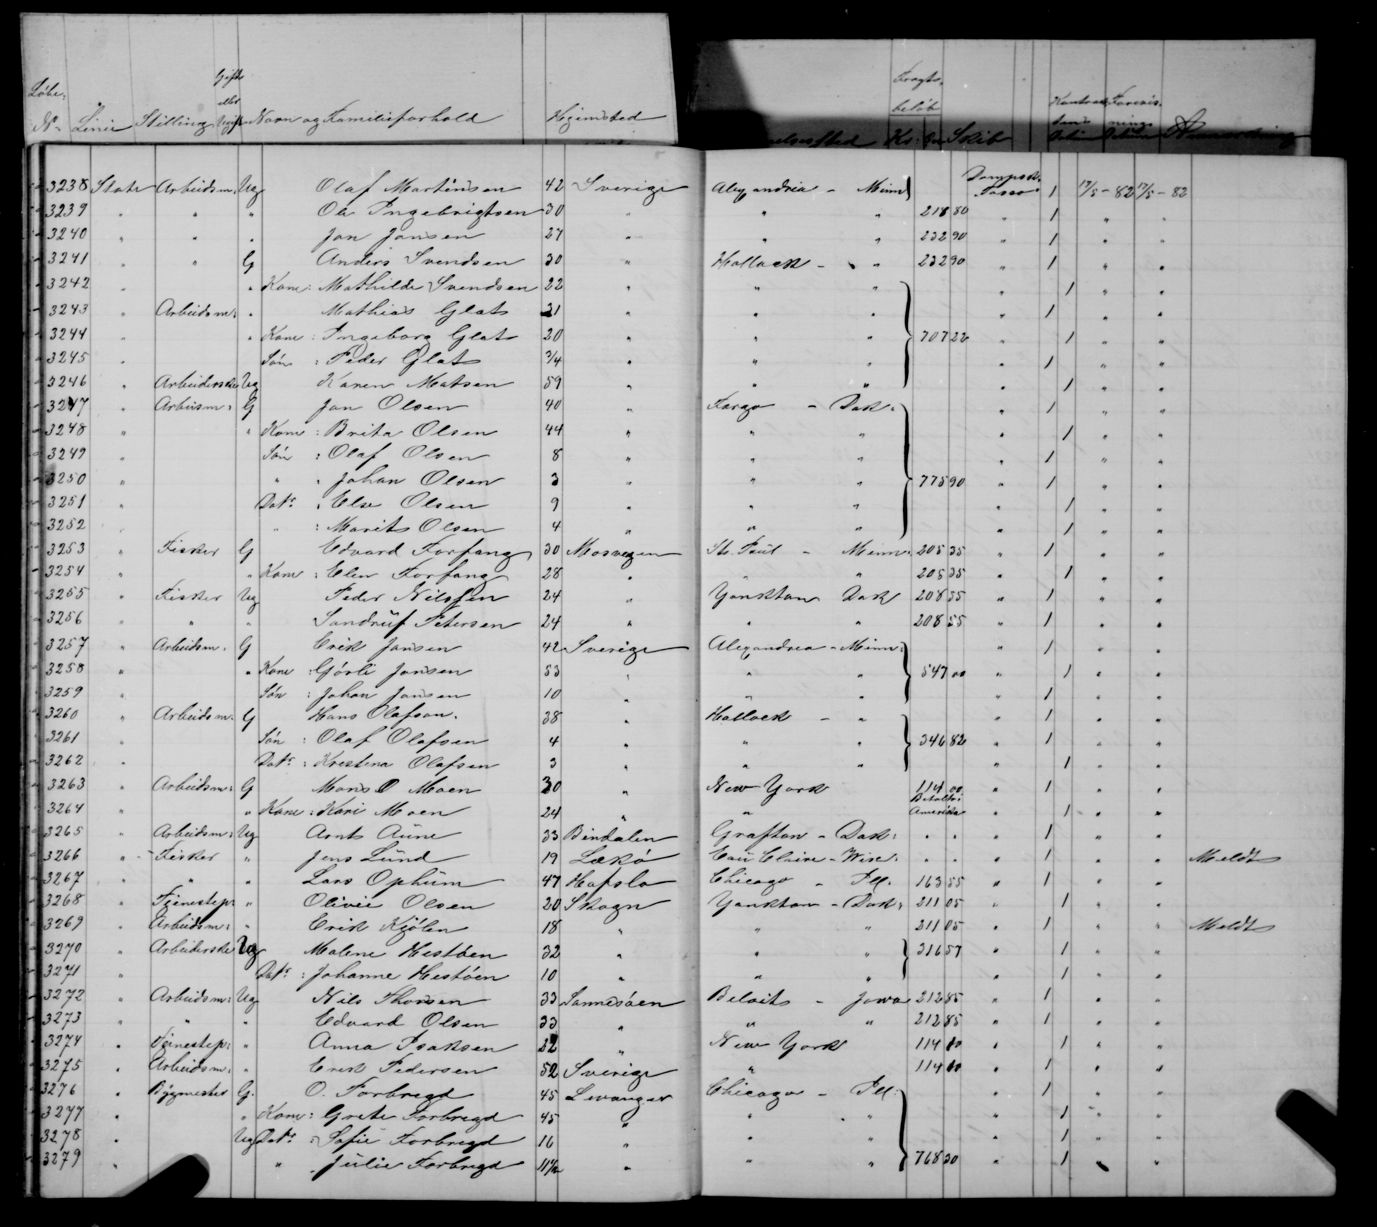 Løbe- Gift Fragt-
No Linie Stilling eller Ugift Navn og Familieforhold Hjemsted beløb Ks: Skib
3238 State Arbeidsm: Ug Olaf Martinsen 42 Sverige Alexandria - Minn Dampsk: Tasso 1 17/5 - 82 17/5 - 82
3239 " " " Ole Ingebrigtsen 30 " " " 218 50 " 1 " "
3240 " " " Jon Jonsen 27 " " " 232 90 " 1 " "
3241 " " G Anders Svendsen 30 " Hallock - " 232 90 " 1 " "
3242 " " Kone: Mathilde Svendsen 22 " " " " 1 " "
3243 " Arbeidsm: " Mathias Glat 21 " " " " 1 " "
3244 " " Kone: Ingeborg Glat 20 " " " 707 22 " 1 " "
3245 " Søn: Peder Glat 3/4 " " " " 1 " "
3246 " Arbeiderske Ug Karen Matsen 59 " " " " 1 " "
3247 " Arbeism: G Jon Olsen 40 " Fargo - Dak: " 1 " "
3248 " " Kone: Brita Olsen 44 " " " " 1 " "
3249 " Søn: Olaf Olsen 8 " " " " 1 " "
3250 " " " Johan Olsen 3 " " " 775 90 " 1 " "
3251 " Datr: Else Olsen 9 " " " " 1 " "
3252 " " : Marit Olsen 4 " " " " 1 " "
3253 " Fisker G Edvard Forfang 30 Mosvigen St. Paul - Minn: 205 35 " 1 " "
3254 " " Kone: Elen Forfang 28 " " " 205 35 " 1 " "
3255 " Fisker Ug Peder Nilssen 24 " Yankton Dak 208 55 " 1 " "
3256 " " " Sandrüp Petersen 24 " " " 208 55 " 1 " "
3257 " Arbeidsm: G Erik Jonsen 42 Sverige Alexandria - Minn: " 1 " "
3258 " " Kone: Gørli Jonsen 53 " " " 547 00 " 1 " "
3259 " Søn: Johan Jonsen 10 " " " " 1 " "
3260 " Arbeidsm: G Hans Olafson. 38 " Hallock - " " 1 " "
3261 " Søn: Olaf Olafsen 4 " " " 346 82 " 1 " "
3262 " Datr: Kristina Olafsen 3 " " " " 1 " "
3263 " Arbeidsm: G Mons O Moen 30 " New York 114 00 " 1 " "
3264 " " Kone: Kari Moen 24 " " Betalt i Amerika " 1 " "
3265 " Arbeidsm: Ug Arnt Aüne 33 Bindalen Grafton - Dak: " " " 1 " "
3266 " Fisker " Jens Lünd 19 Lekø Eau Claire - Wisc. " " " 1 " " Meldt
3267 " " " Lars Ophüm 47 Hafslo Chicago - Ill. 163 55 " 1 " "
3268 " Tjenestep: " Olivie Olsen 20 Skogn Yankton - Dak: 211 05 " 1 " "
3269 " Arbeidsm: " Erik Kjølen 18 " " " 211 05 " 1 " " Meldt
3270 " Arbeiderske Ug Malene Hestøen 32 " " " 316 57 " 1 " "
3271 " Datr: Johanne Hestøen 10 " " " " 1 " "
3272 " Arbeidsm: Ug Nils Thorsen 33 Beloit - Jowa 212 85 " 1 " "
3273 " " " Edvard Olsen 33 " " " 212 85 " 1 " "
3274 " Tjenestep: " Anna Isaksen 22 " New York 114 00 " 1 " "
3275 " Arbeidsm: " Erik Pedersen 52 Sverige " 114 00 " 1 " "
3276 " Bygmester G. O. Forbregd 45 Levanger Chicago - Ill. " 1 " "
3277 " " Kone: Grete Forbregd 45 " " " " 1 " "
3278 " Ug Datr: Sofie Forbregd 16 " " " " 1 " "
3279 " " Julie Forbregd 11½ " " " 768 30 " 1 " "